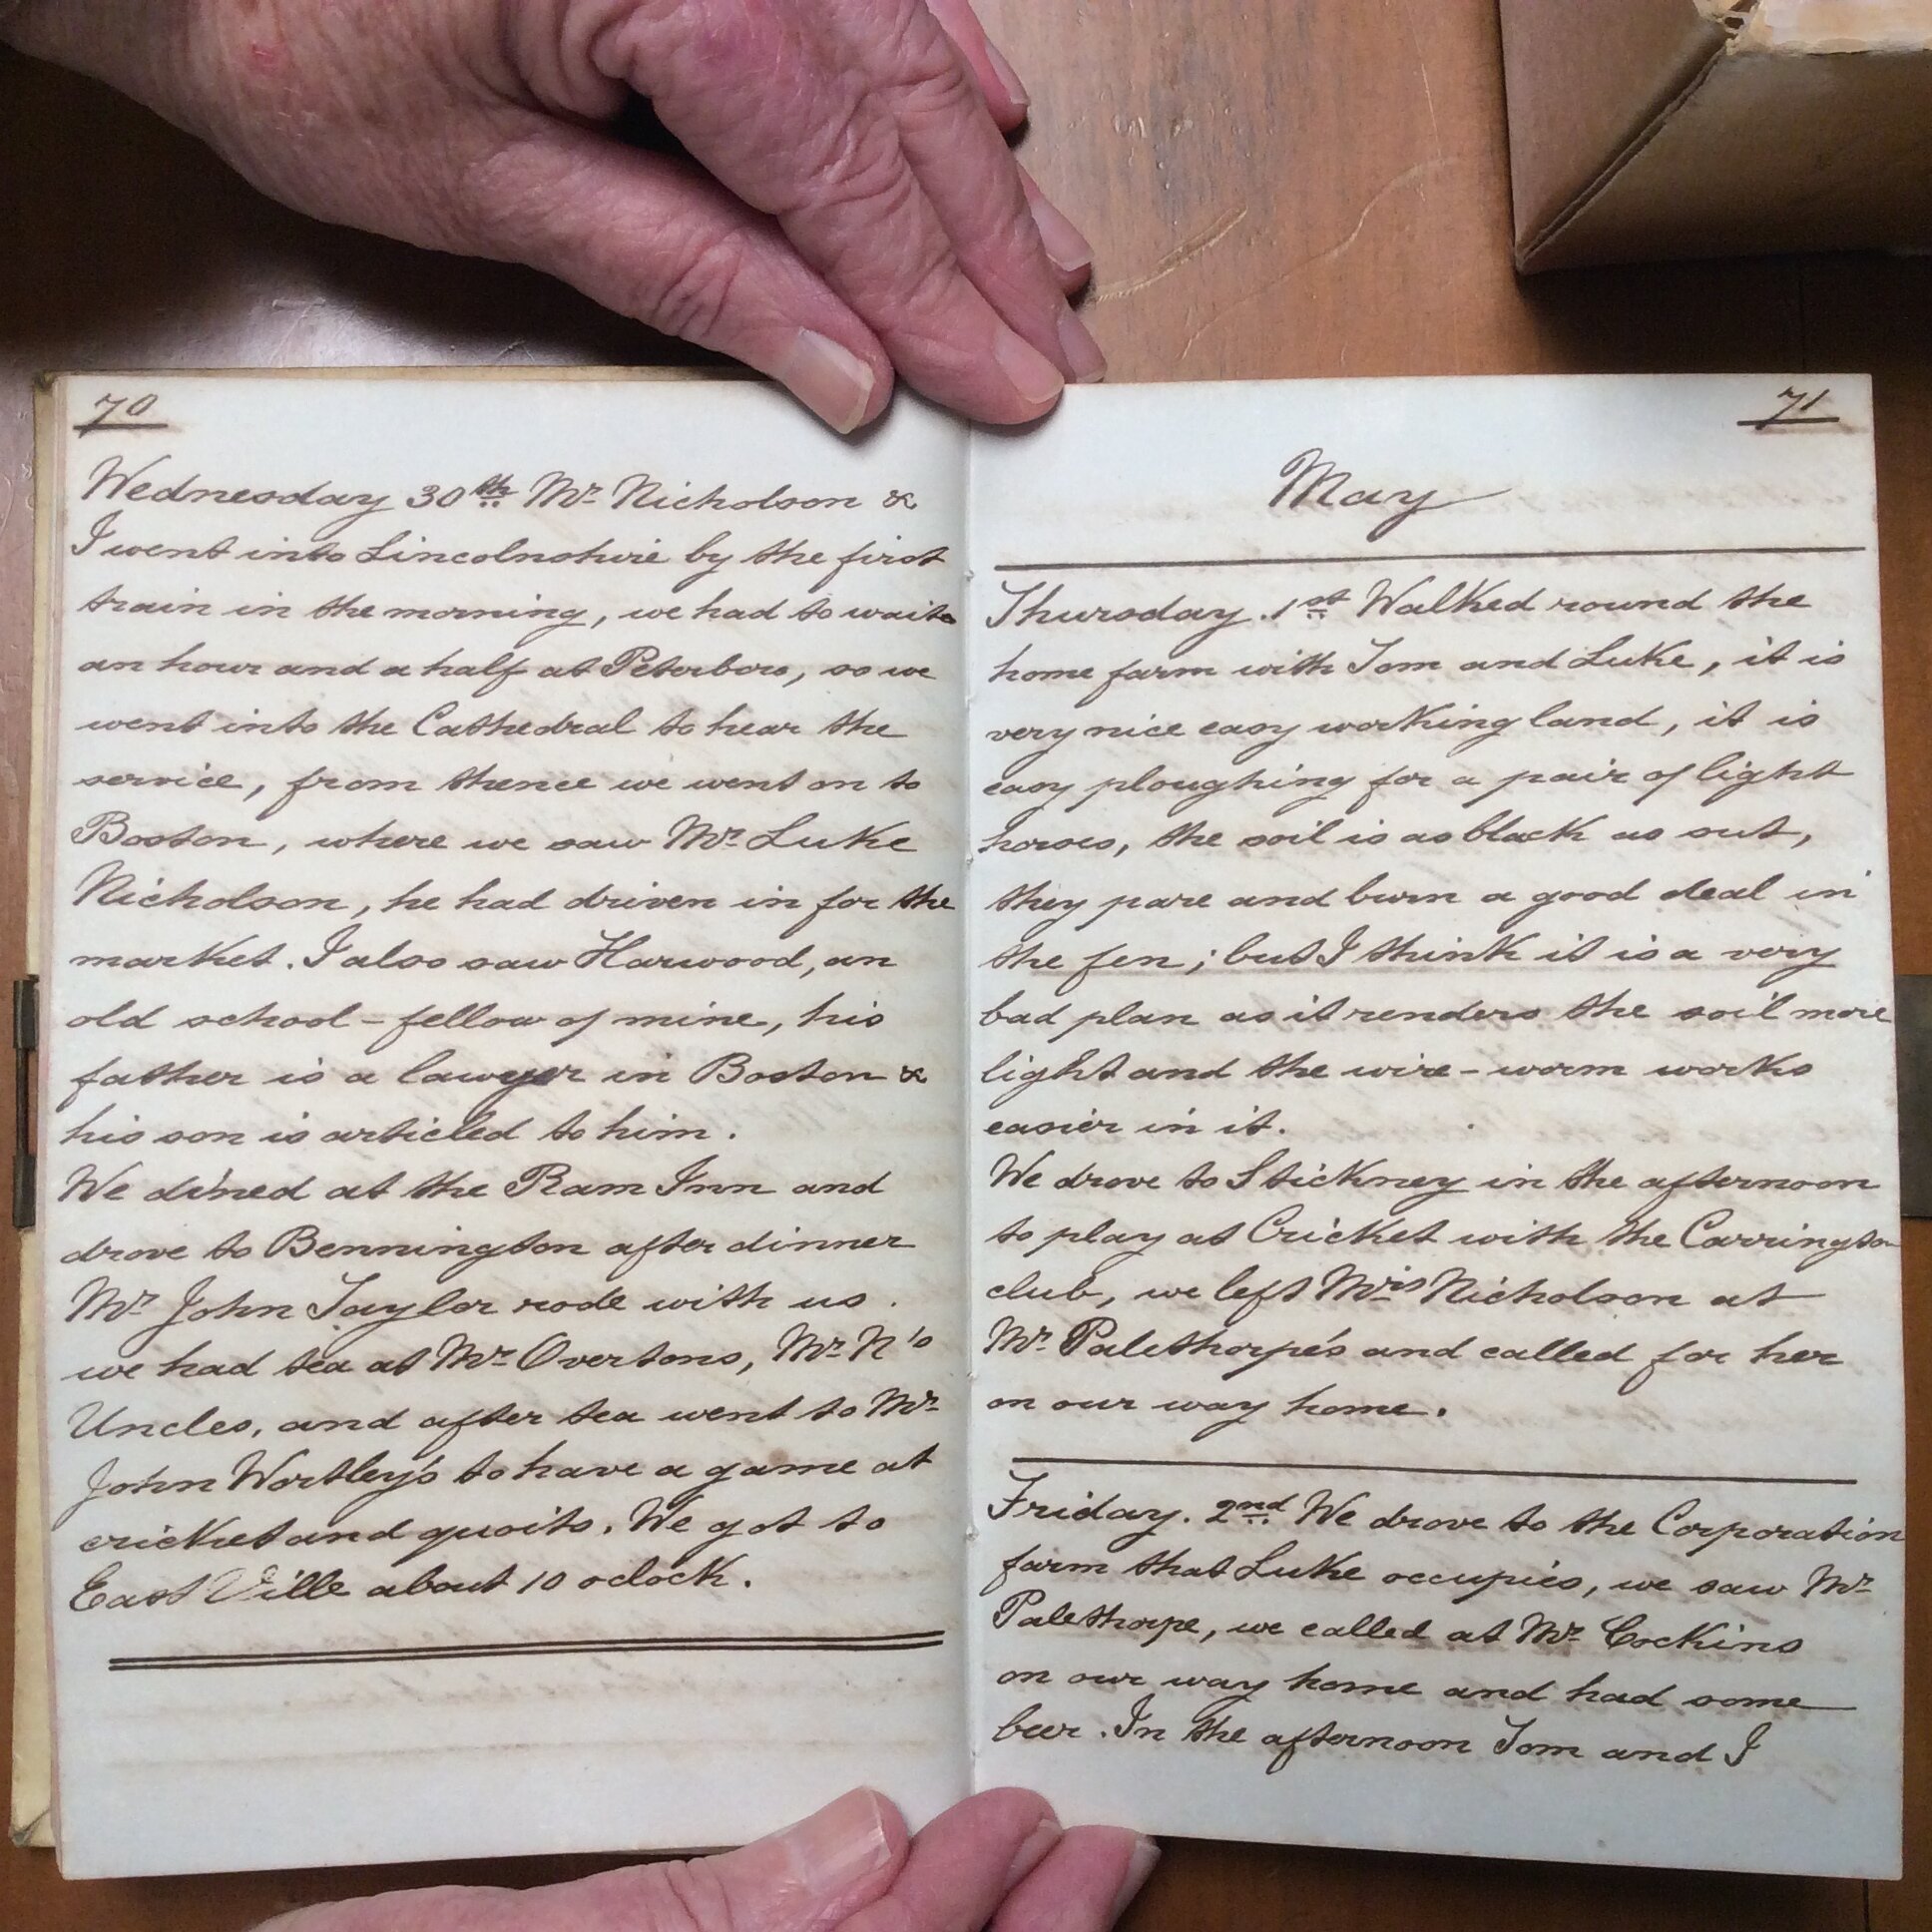 70
Wednesday 30th Mr Nicholson &
I went into Lincolnshire by the first
train in the morning, we had to wait
an hour and a half at Peterboro, so we
went into the Cathedral to hear the
service, from thence we went on to
Boston, where we saw Mr Luke
Nicholson, he had driven in for the
market. I also saw Harwood, an
old school-fellow of mine, his
father is a lawyer in Boston &
his son is articled to him.
We dined at the Ram Inn and
drove to Bennington after dinner
Mr John Taylor rode with us.
we had tea at Mr Overtons, Mr N's
Uncles, and after tea went to Mr
John Wortley's to have a game at
cricket and quoits. We got to
East Ville about 10 oclock.
71
May
Thursday. 1st Walked round the
home farm with Tom and Luke, it is
very nice easy working land, it is
easy ploughing for a pair of light
horses, the soil is as black as sut,
they pare and burn a good deal in
the fen; but I think it is a very
bad plan as it renders the soil more
light and the wire-worm works
easier in it.
We drove to Stickney in the afternoon
to play at Cricket with the Carrington
club, we left Mris Nicholson at
Mr Palethorpe's and called for her
on our way home.
Friday. 2nd We drove to the Corporation
farm that Luke occupies, we saw Mr
Palethorpe, we called at Mr Cockins
on our way home and had some
beer. In the afternoon Tom and I